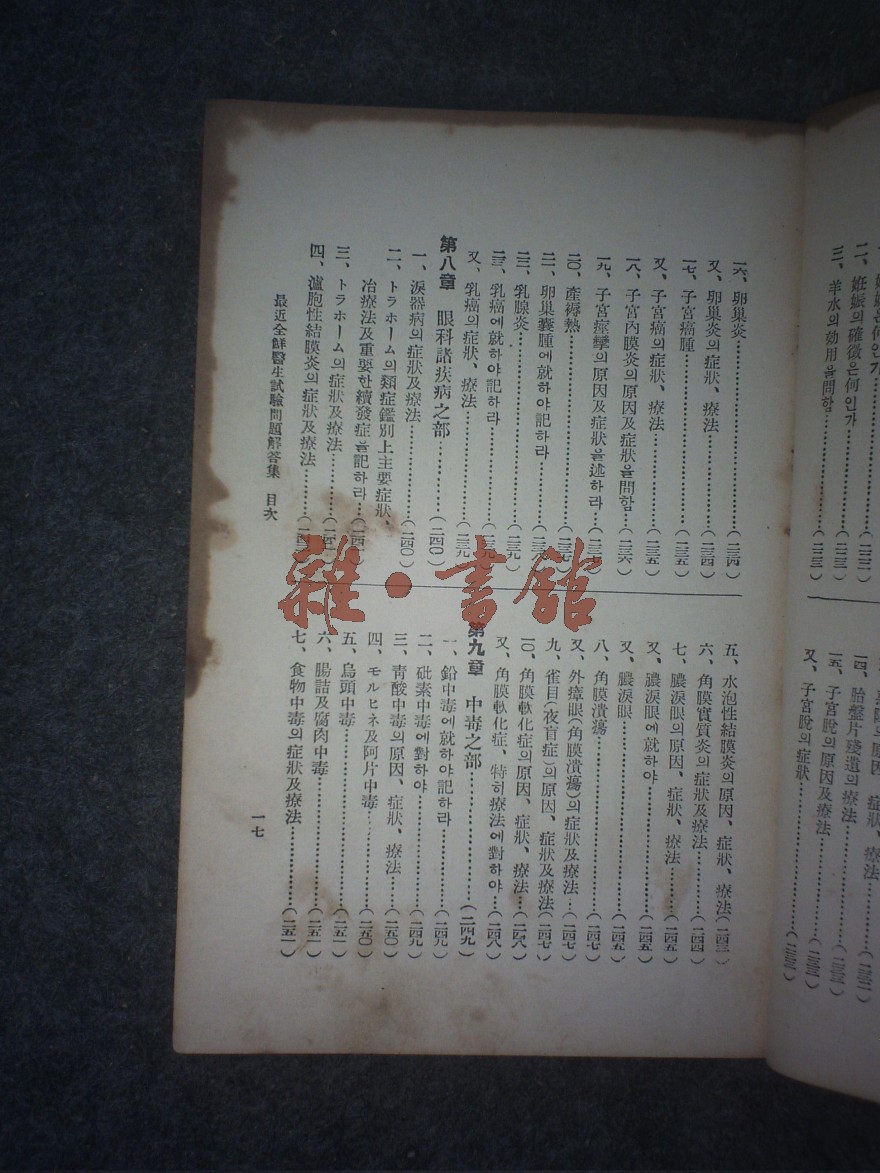 三、羊水の効用을問함……(二三三)
一四、胎盤片殘遺의療法……(二三三)
一五、子宮脫의原因及療法……(二三三)
又、子宮脫의症狀……(二三三)
一六、卵巢炎……(二三四)
又、卵巢炎의症狀、療法……(二三四)
一七、子宮癌腫……(二三五)
又、子宮癌의症狀、療法……(二三五)
一八、子宮內膜炎의原因及症狀을問함……(二三六)
一九、子宮痙攣의原因及症狀을述하라……(二三六)
二〇、產褥熱……(二三七)
二一、卵巢囊腫에就하야記하라……(二三八)
二二、乳腺炎……(二三九)
二三、乳癌에就하야記하라……(二三九)
又、乳癌의症狀、療法……(二三九)
第八章 眼科諸疾病之部……(二四〇)
一、淚器病의症狀及療法……(二四〇)
二、トラホーム의類症鑑別上主要症狀、
冶療法及重要한續發症을記하라……(二四一)
三、トラホーム의症狀及療法……(二四二)
四、濾胞性結膜炎의症狀及療法……(二四二)
五、水泡性結膜炎의原因、症狀、療法(二四三)
六、角膜實質炎의症狀及療法……(二四四)
七、膿淚眼의原因、症狀、療法……(二四五)
又、膿淚眼에就하야……(二四五)
又、膿淚眼……(二四五)
八、角膜潰瘍……(二四七)
又、外瘴眼(角膜潰瘍)의症狀及療法…(二四七)
九、雀目(夜盲症)의原因、症狀及療法(二四七)
一〇、角膜軟化症의原因、症狀、療法…(二四八)
又、角膜軟化症、特히療法에對하야…(二四八)
第九章 中毒之部……(二四九)
一、鉛中毒에就하야記하라……(二四九)
二、砒素中毒에對하야……(二四九)
三、靑酸中毒의原因、症狀、療法……(二五〇)
四、モルヒネ及阿片中毒……(二五〇)
五、烏頭中毒……(二五一)
六、腸詰及腐肉中毒……(二五一)
七、食物中毒의症狀及療法……(二五一)
最近全鮮醫生試驗問題解答集 目次
一七
雜・書館